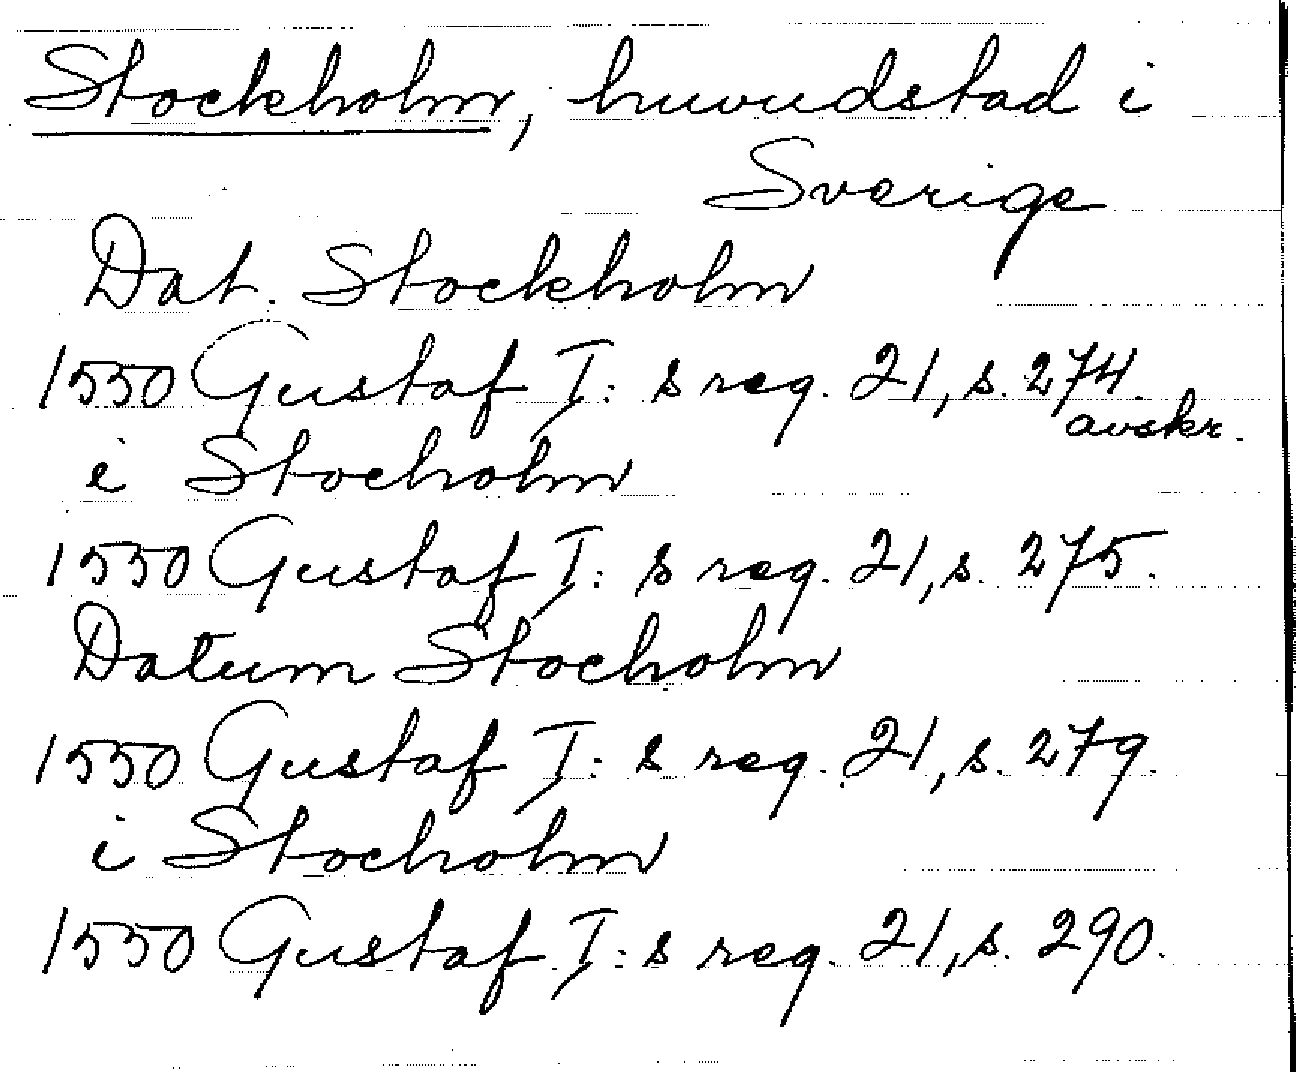 Stockholm, huvudstad i
Sverige
Dat. Stockholm
1550 Gustaf I: s reg. 21, s. 274.
avskr.
i Stocholm
1550 Gustaf I: s reg. 21, s. 275.
Datum Stocholm
1550 Gustaf I: s reg. 21, s. 279.
i Stocholm
1550 Gustaf I: s reg. 21, s. 290.